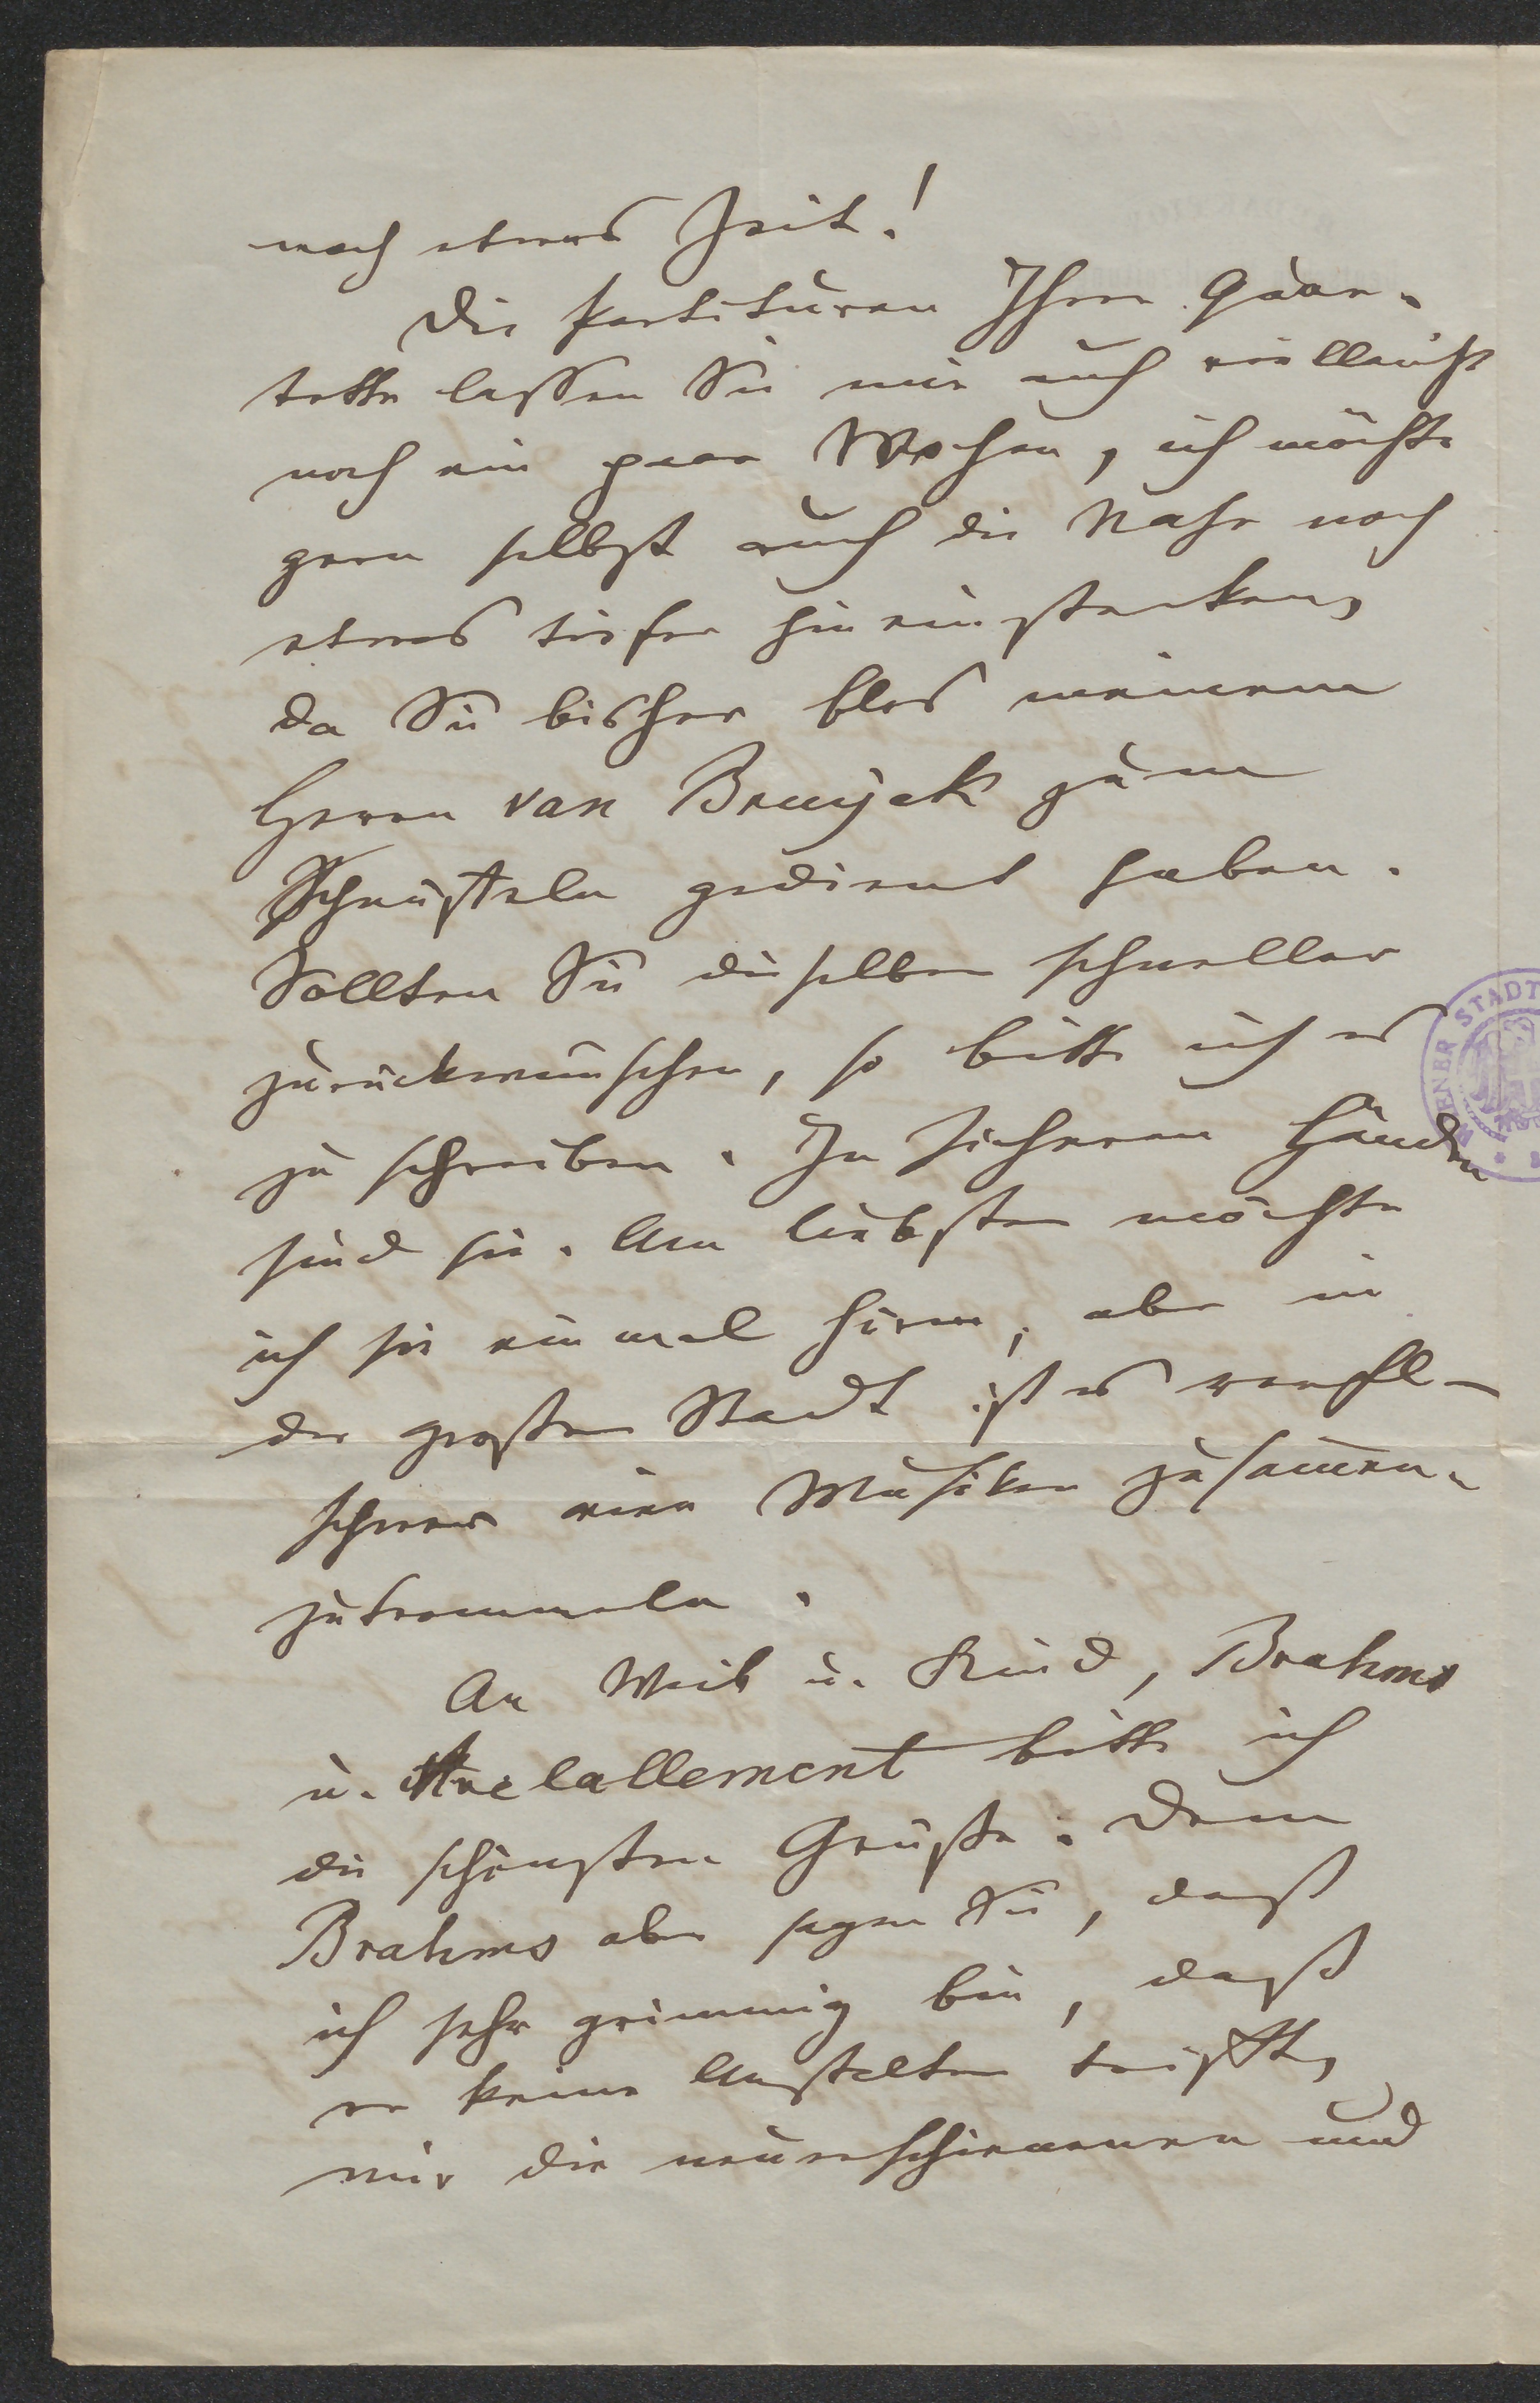 noch etwas Zeit!
Die Partituren Ihrer Quar-
tette lassen Sie mir auch vielleicht
noch ein paar Wochen, ich möchte
gern selbst auch die Nase noch
etwas tiefer hineinstecken,
da Sie bisher blos meinem
Herrn van Bruyck zum
Schnüffeln gedient haben.
Sollten Sie dieselben schneller
zurückwünschen, so bitte ich es
zu schreiben. In sicheren Händen
sind sie. Am liebsten möchte
ich sie einmal hören, aber in
der großen Stadt ist es
schwer vier Musiker zusammen-
zutrommeln.
An Weib u. Kind, Brahms
u. Avé lallement bitte ich
die schönsten Grüße. Dem
Brahms aber sagen Sie, daß
ich sehr grimmig bin, daß
er keine Anstalten trifft,
mir die neuerschienenen und
WIENER STADT